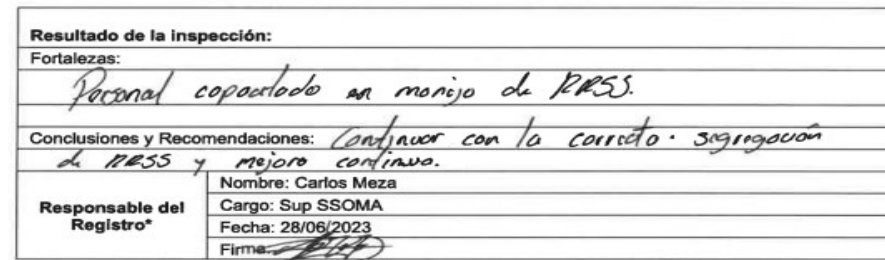 Resultado de la inspección:
Fortalezas:
Personal capacitado en manejo de RRSS.
Conclusiones y Recomendaciones: Continuar con la correcta segregación
de RRSS y mejora continua.
Responsable del
Registro*
Nombre: Carlos Meza
Cargo: Sup SSOMA
Fecha: 28/06/2023
Firma: